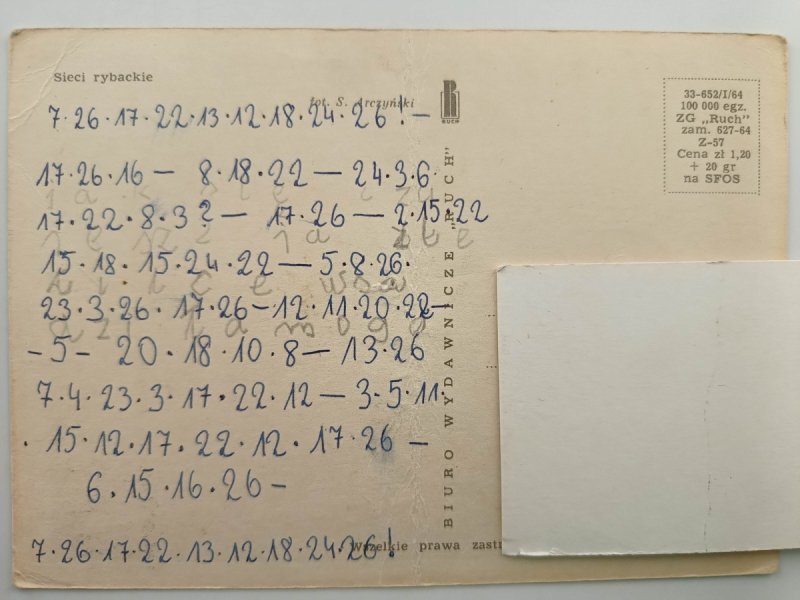 Sieci rybackie
fot. S. Arczyński
RUCH
33-652/I/64
100 000 egz.
ZG „Ruch”
zam. 627-64
Z-57
Cena zł 1,20
+ 20 gr
na SFOS
7·26·17·22·13·12·18·24·26!-
17·26·16 — 8·18·22 — 24·3·6·
17·22·8·3? — 17·26 — 2·15·22
15·18·15·24·22 — 5·8·26·
23·3·26·17·26 — 12·11·20·22 —
-5- 20·18·10·8 — 13·26
7·4·23·3·17·22·12 — 3·5·11·
·15·12·17·22·12·17·26 —
6·15·16·26 —
7·26·17·22·13·12·18·24·26!
BIURO WYDAWNICZE „RUCH”
Wszelkie prawa zastr